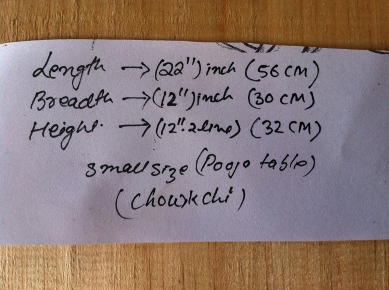 Length → (22") inch (56 CM)
Breadth → (12") inch (30 CM)
Height. → (12".2line) (32 CM)
Small size (Pooja table)
(Chowkchi)